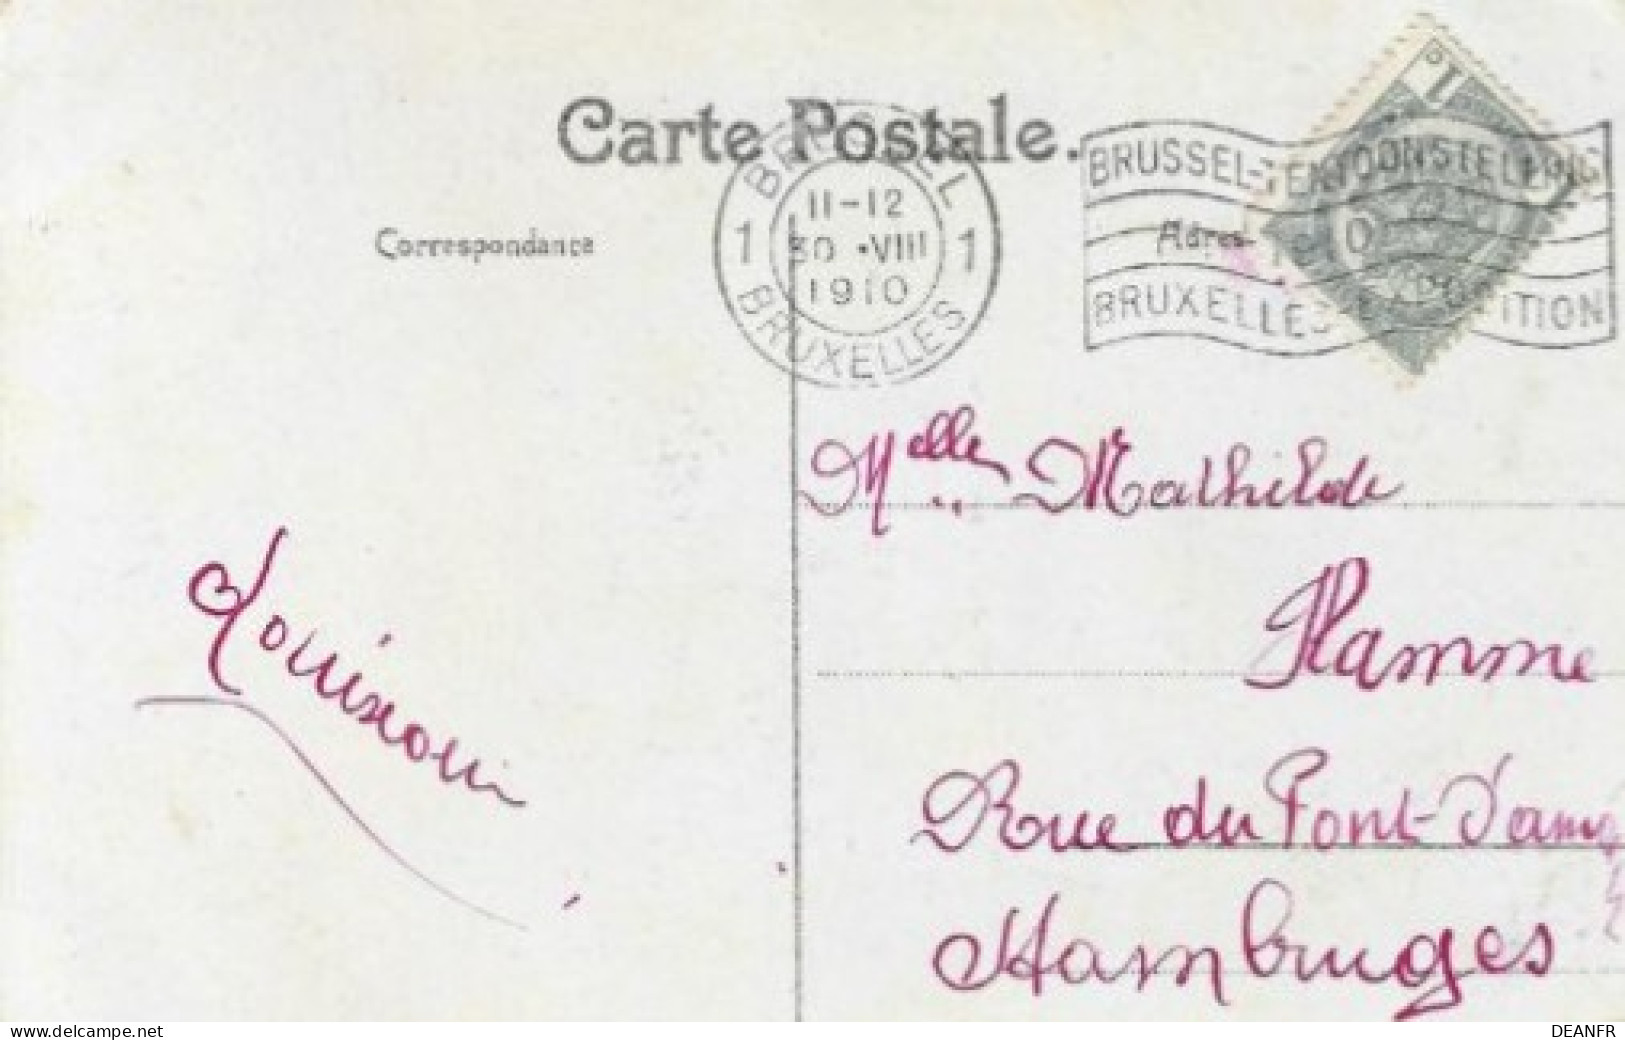 Carte Postale.
BRUSSEL
11-12
1 30 •VIII 1
1910
BRUXELLES
BRUSSEL-TENTOONSTELLING
BRUXELLES-EXPOSITION
1
Correspondance
Adres
Melle Mathilde
Flamme
Rue du Pont-d'
Hambruges
www.delcampe.net
DEANFR